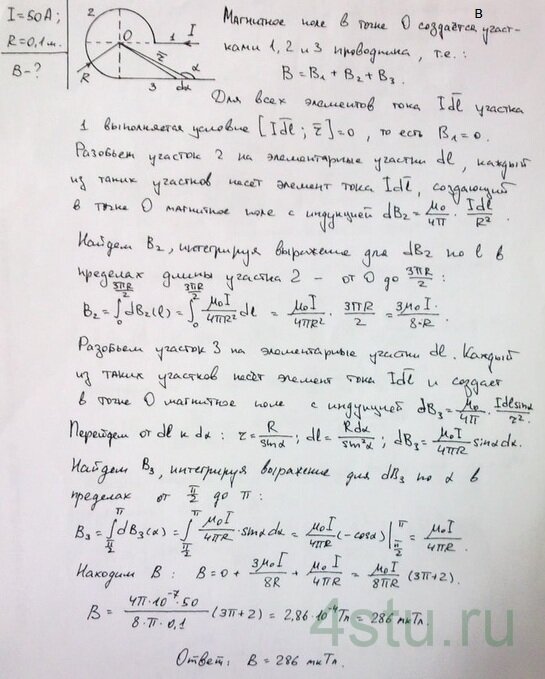 I=50A;
R=0,1м.
B-?
2
O
I
1
r̅
α
R
3
dα
В
Магнитное поле в точке O создаётся участ-
ками 1, 2 и 3 проводника, т.е.:
B = B₁ + B₂ + B₃.
Для всех элементов тока Id̅l участка
1 выполняется условие [Id̅l; r̅]=0, то есть B₁=0.
Разобьем участок 2 на элементарные участки dl, каждый
из таких участков несёт элемент тока Id̅l, создающий
в точке O магнитное поле с индукцией dB₂ = μ₀/4π · Idl/R².
Найдем B₂, интегрируя выражение для dB₂ по l в
пределах длины участка 2 – от 0 до 3πR/2 :
B₂ = ∫₀^(3πR/2) dB₂(l) = ∫₀^(3πR/2) μ₀I/4πR² dl = μ₀I/4πR² · 3πR/2 = 3μ₀I/8·R.
Разобьем участок 3 на элементарные участки dl. Каждый
из таких участков несёт элемент тока Id̅l и создает
в точке O магнитное поле с индукцией dB₃ = μ₀/4π · Idl sinα/r².
Перейдем от dl к dα: r = R/sinα; dl = Rdα/sin²α; dB₃ = μ₀I/4πR sinα dα.
Найдем B₃, интегрируя выражение для dB₃ по α в
пределах от π/2 до π:
B₃ = ∫_(π/2)^π dB₃(α) = ∫_(π/2)^π μ₀I/4πR · sinα dα = μ₀I/4πR (-cosα)|_(π/2)^π = μ₀I/4πR.
Находим B: B = 0 + 3μ₀I/8R + μ₀I/4πR = μ₀I/8πR (3π+2).
B = 4π·10⁻⁷·50/8·π·0,1 (3π+2) = 2,86·10⁻⁴Тл = 286 мкТл.
Ответ: B = 286 мкТл.
4stu.ru